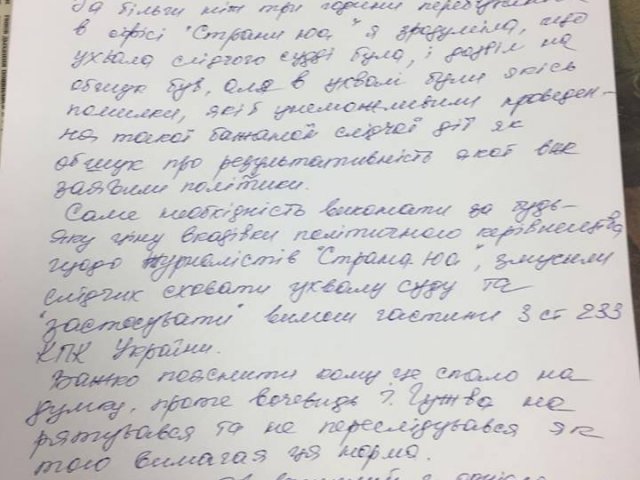 За більш ніж три години перебування
в офісі "Страни юа" я зрозуміла, що
ухвала слідчого судді була, і дозвіл на
обшук був, але в ухвалі були якісь
помилки, які б унеможливили проведен-
ня такої бажаної слідчої дії як
обшук про результативність якої вже
заявили політики.
Саме необхідність виконати за будь-
яку ціну вказівки політичного керівництва,
щодо журналістів "Страна юа", змусили
слідчих сховати ухвалу суду та
"застосувати" вимоги частини 3 ст 233
КПК України.
Важко пояснити кому це спало на
думку, проте вочевидь І. Гужва не
рятувався та не переслідувався як
того вимагая ця норма.